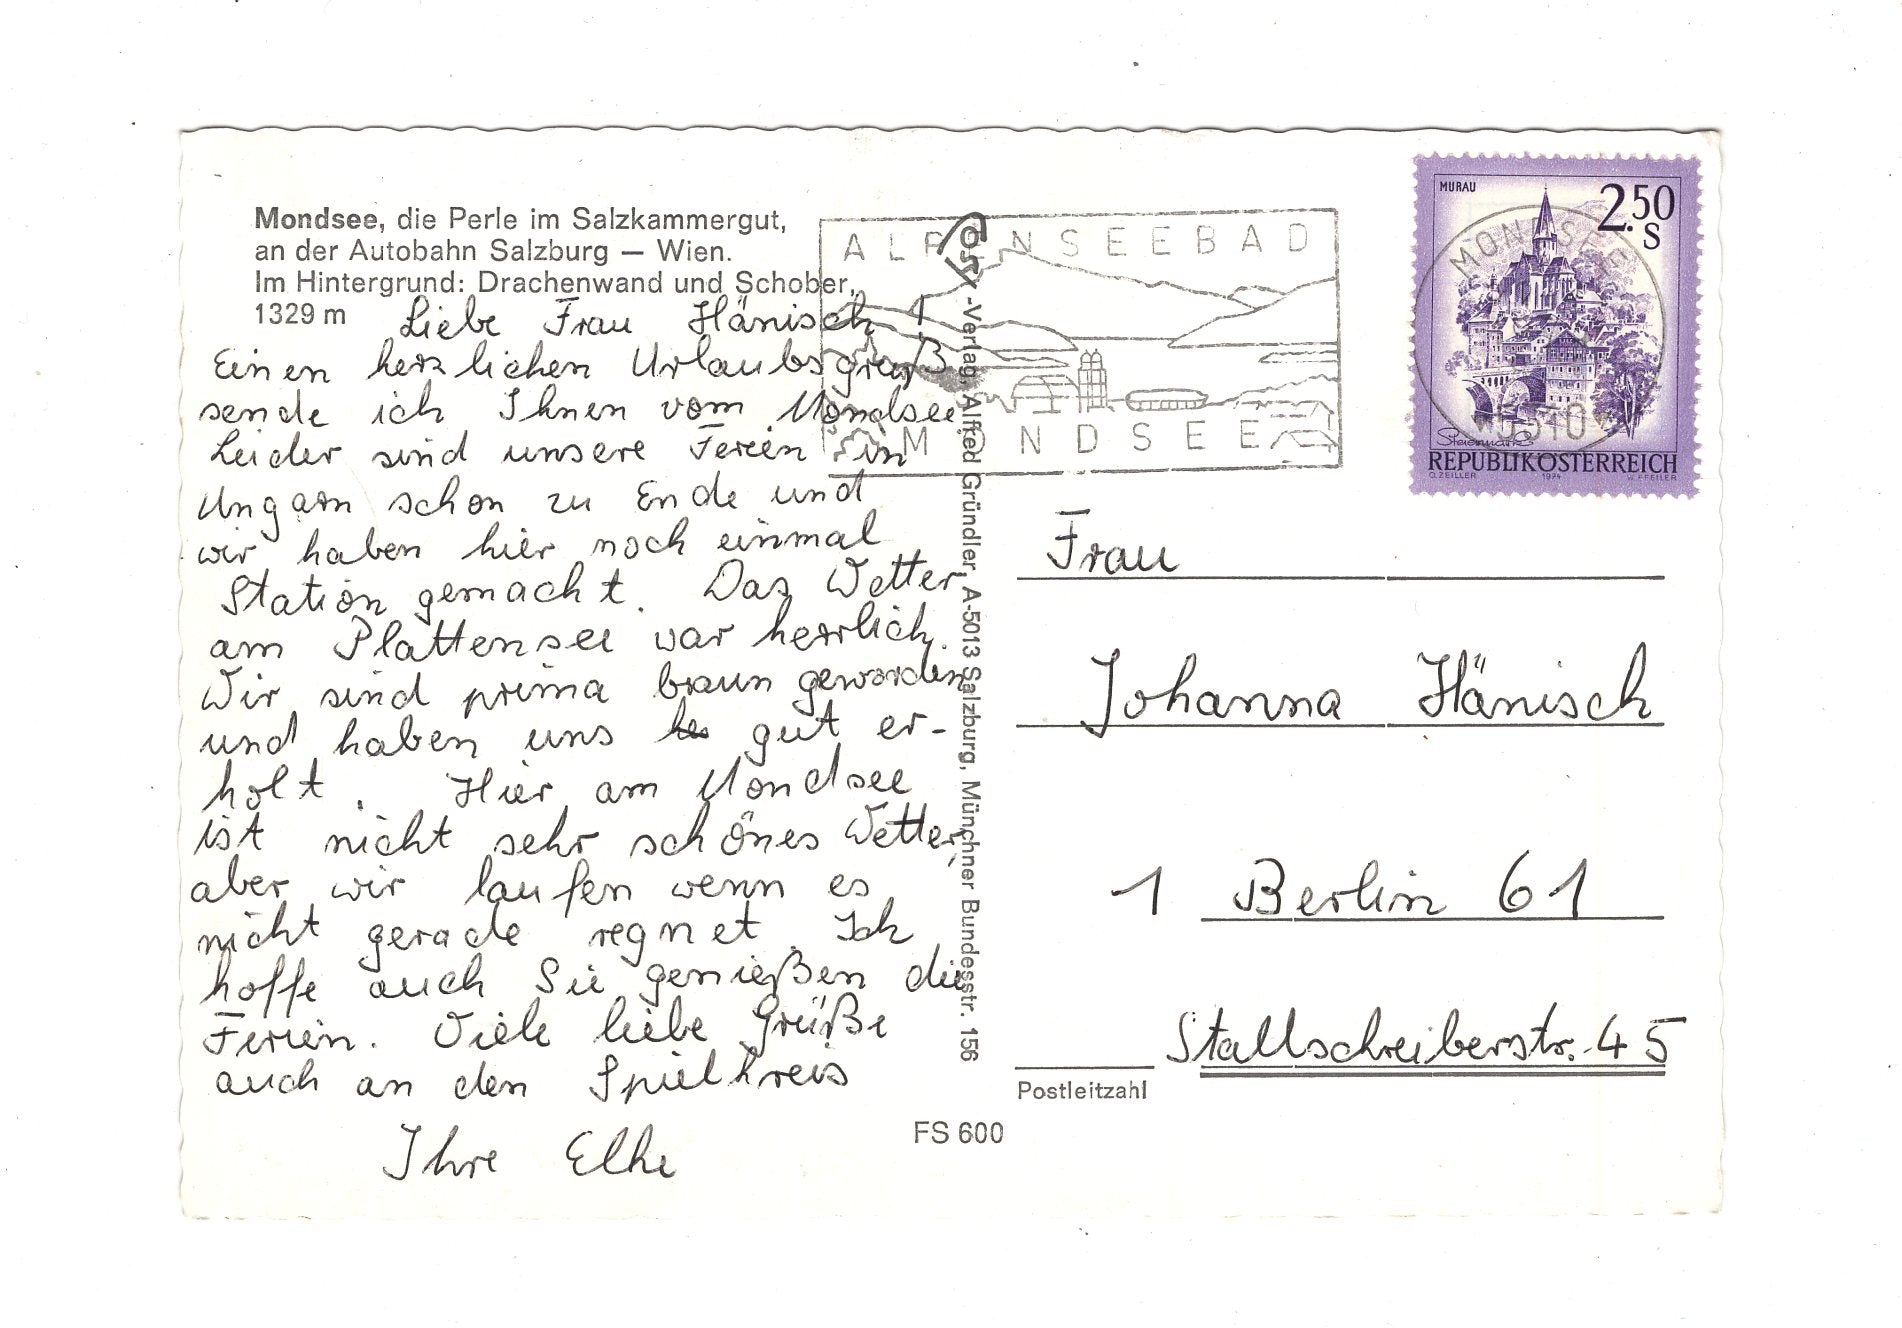 Mondsee, die Perle im Salzkammergut,
an der Autobahn Salzburg — Wien.
Im Hintergrund: Drachenwand und Schober,
1329 m
Liebe Frau Hänisch !
Einen herzlichen Urlaubsgruß
sende ich Ihnen vom Mondsee
Leider sind unsere Ferien in
Ungarn schon zu Ende und
wir haben hier noch einmal
Station gemacht. Das Wetter
am Plattensee war herrlich.
Wir sind prima braun geworden
und haben uns gut er-
holt. Hier am Mondsee
ist nicht sehr schönes Wetter,
aber wir laufen wenn es
nicht gerade regnet. Ich
hoffe auch Sie genießen die
Ferien. Viele liebe Grüße
auch an den Spielkreis
Ihre Elke
ALPENSEEBAD
MONDSEE
-Verlag, Alfred Gründler, A-5013 Salzburg, Münchner Bundesstr. 156
FS 600
MURAU
2.50
S
MONDSEE
5310
Steiermark
REPUBLIK ÖSTERREICH
O. ZEILLER 1974 W. PFEILER
Frau
Johanna Hänisch
1 Berlin 61
Stallschreiberstr. 45
Postleitzahl